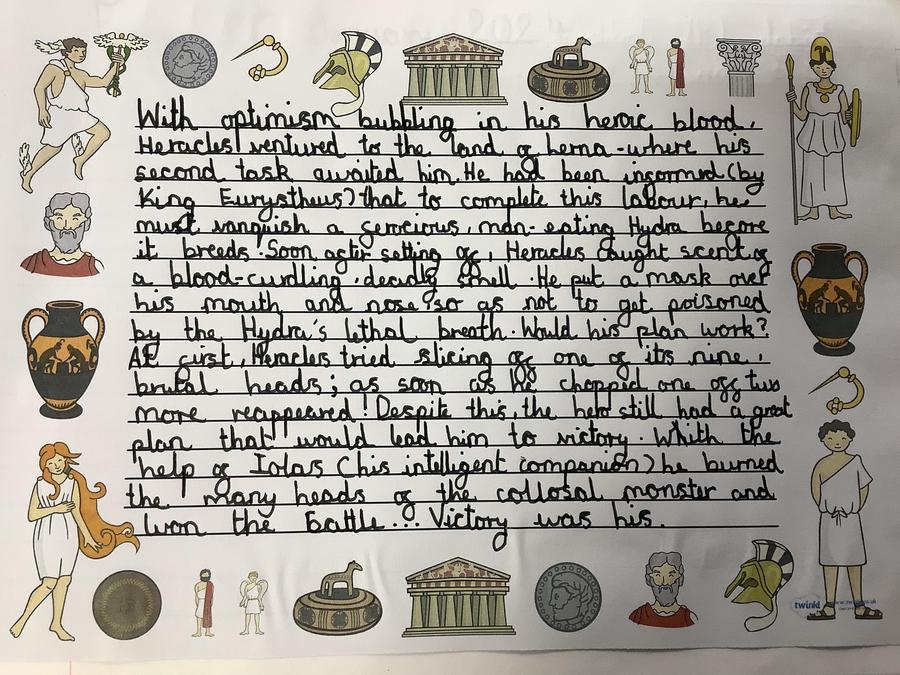 With optimism bubbling in his heroic blood,
Heracles ventured to the land of Lerna - where his
second task awaited him. He had been informed (by
King Eurystheus) that to complete this labour, he
must vanquish a ferocious, man-eating Hydra before
it breeds. Soon after setting of, Heracles caught scent of
a blood-curdling, deadly smell. He put a mask over
his mouth and nose so as not to get poisoned
by the Hydra's lethal breath. Would his plan work?
At first, Heracles tried slicing off one of its nine,
brutal heads; as soon as he chopped one off two
more reappeared! Despite this, the hero still had a great
plan that would lead him to victory. Whith the
help of Iolas (his intelligent companion) he burned
the many heads of the collosal monster and
won the battle... Victory was his.
twinkl